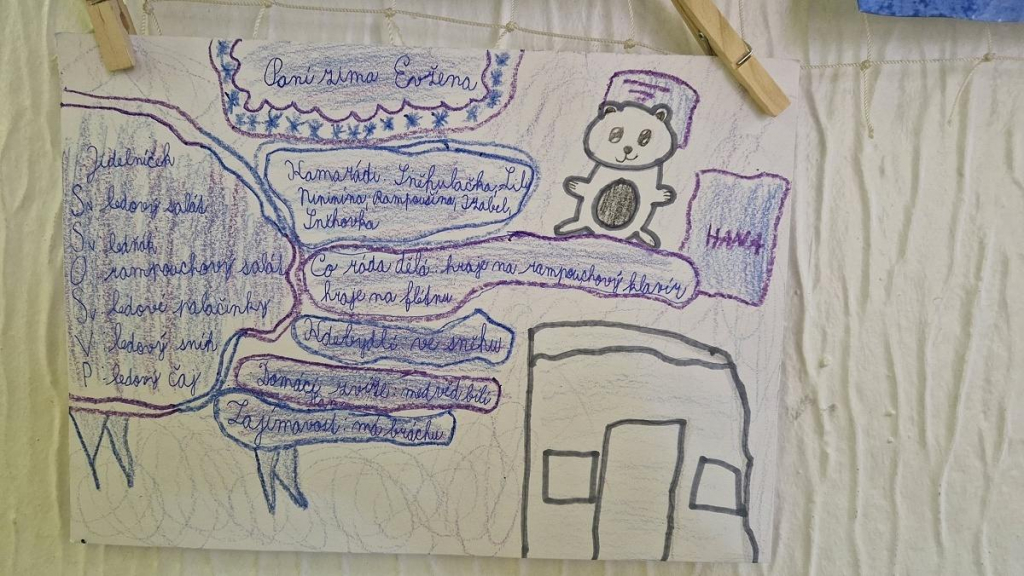 Paní zima Evžena
Jídelníček
Sv ledový salás
Sv lednák
O rampouchový salát
Sv ledové palačinky
V ledový sníh
P ledový čaj
Kamarádi Sněhulačka, Lily
Nininina, Rampousina, Izabel,
Sněhovka
Co ráda dělá hraje na rampouchový klavír
hraje na flétnu
Kdebydlí ve sněhu
Domácí zvíře medvěd bílí
Zajímavost má bráchu
HANA